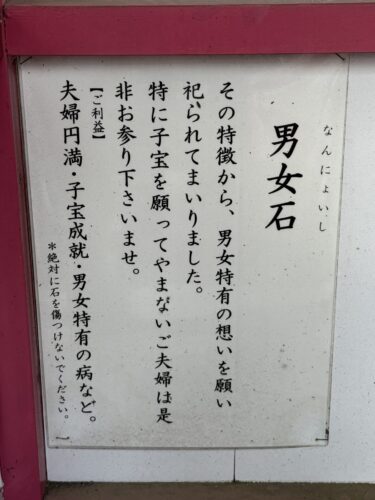 なんにょいし
男女石
その特徴から、男女特有の想いを願い
祀られてまいりました。
特に子宝を願ってやまないご夫婦は是
非お参り下さいませ。
【ご利益】
夫婦円満・子宝成就・男女特有の病など。
＊絶対に石を傷つけないでください。